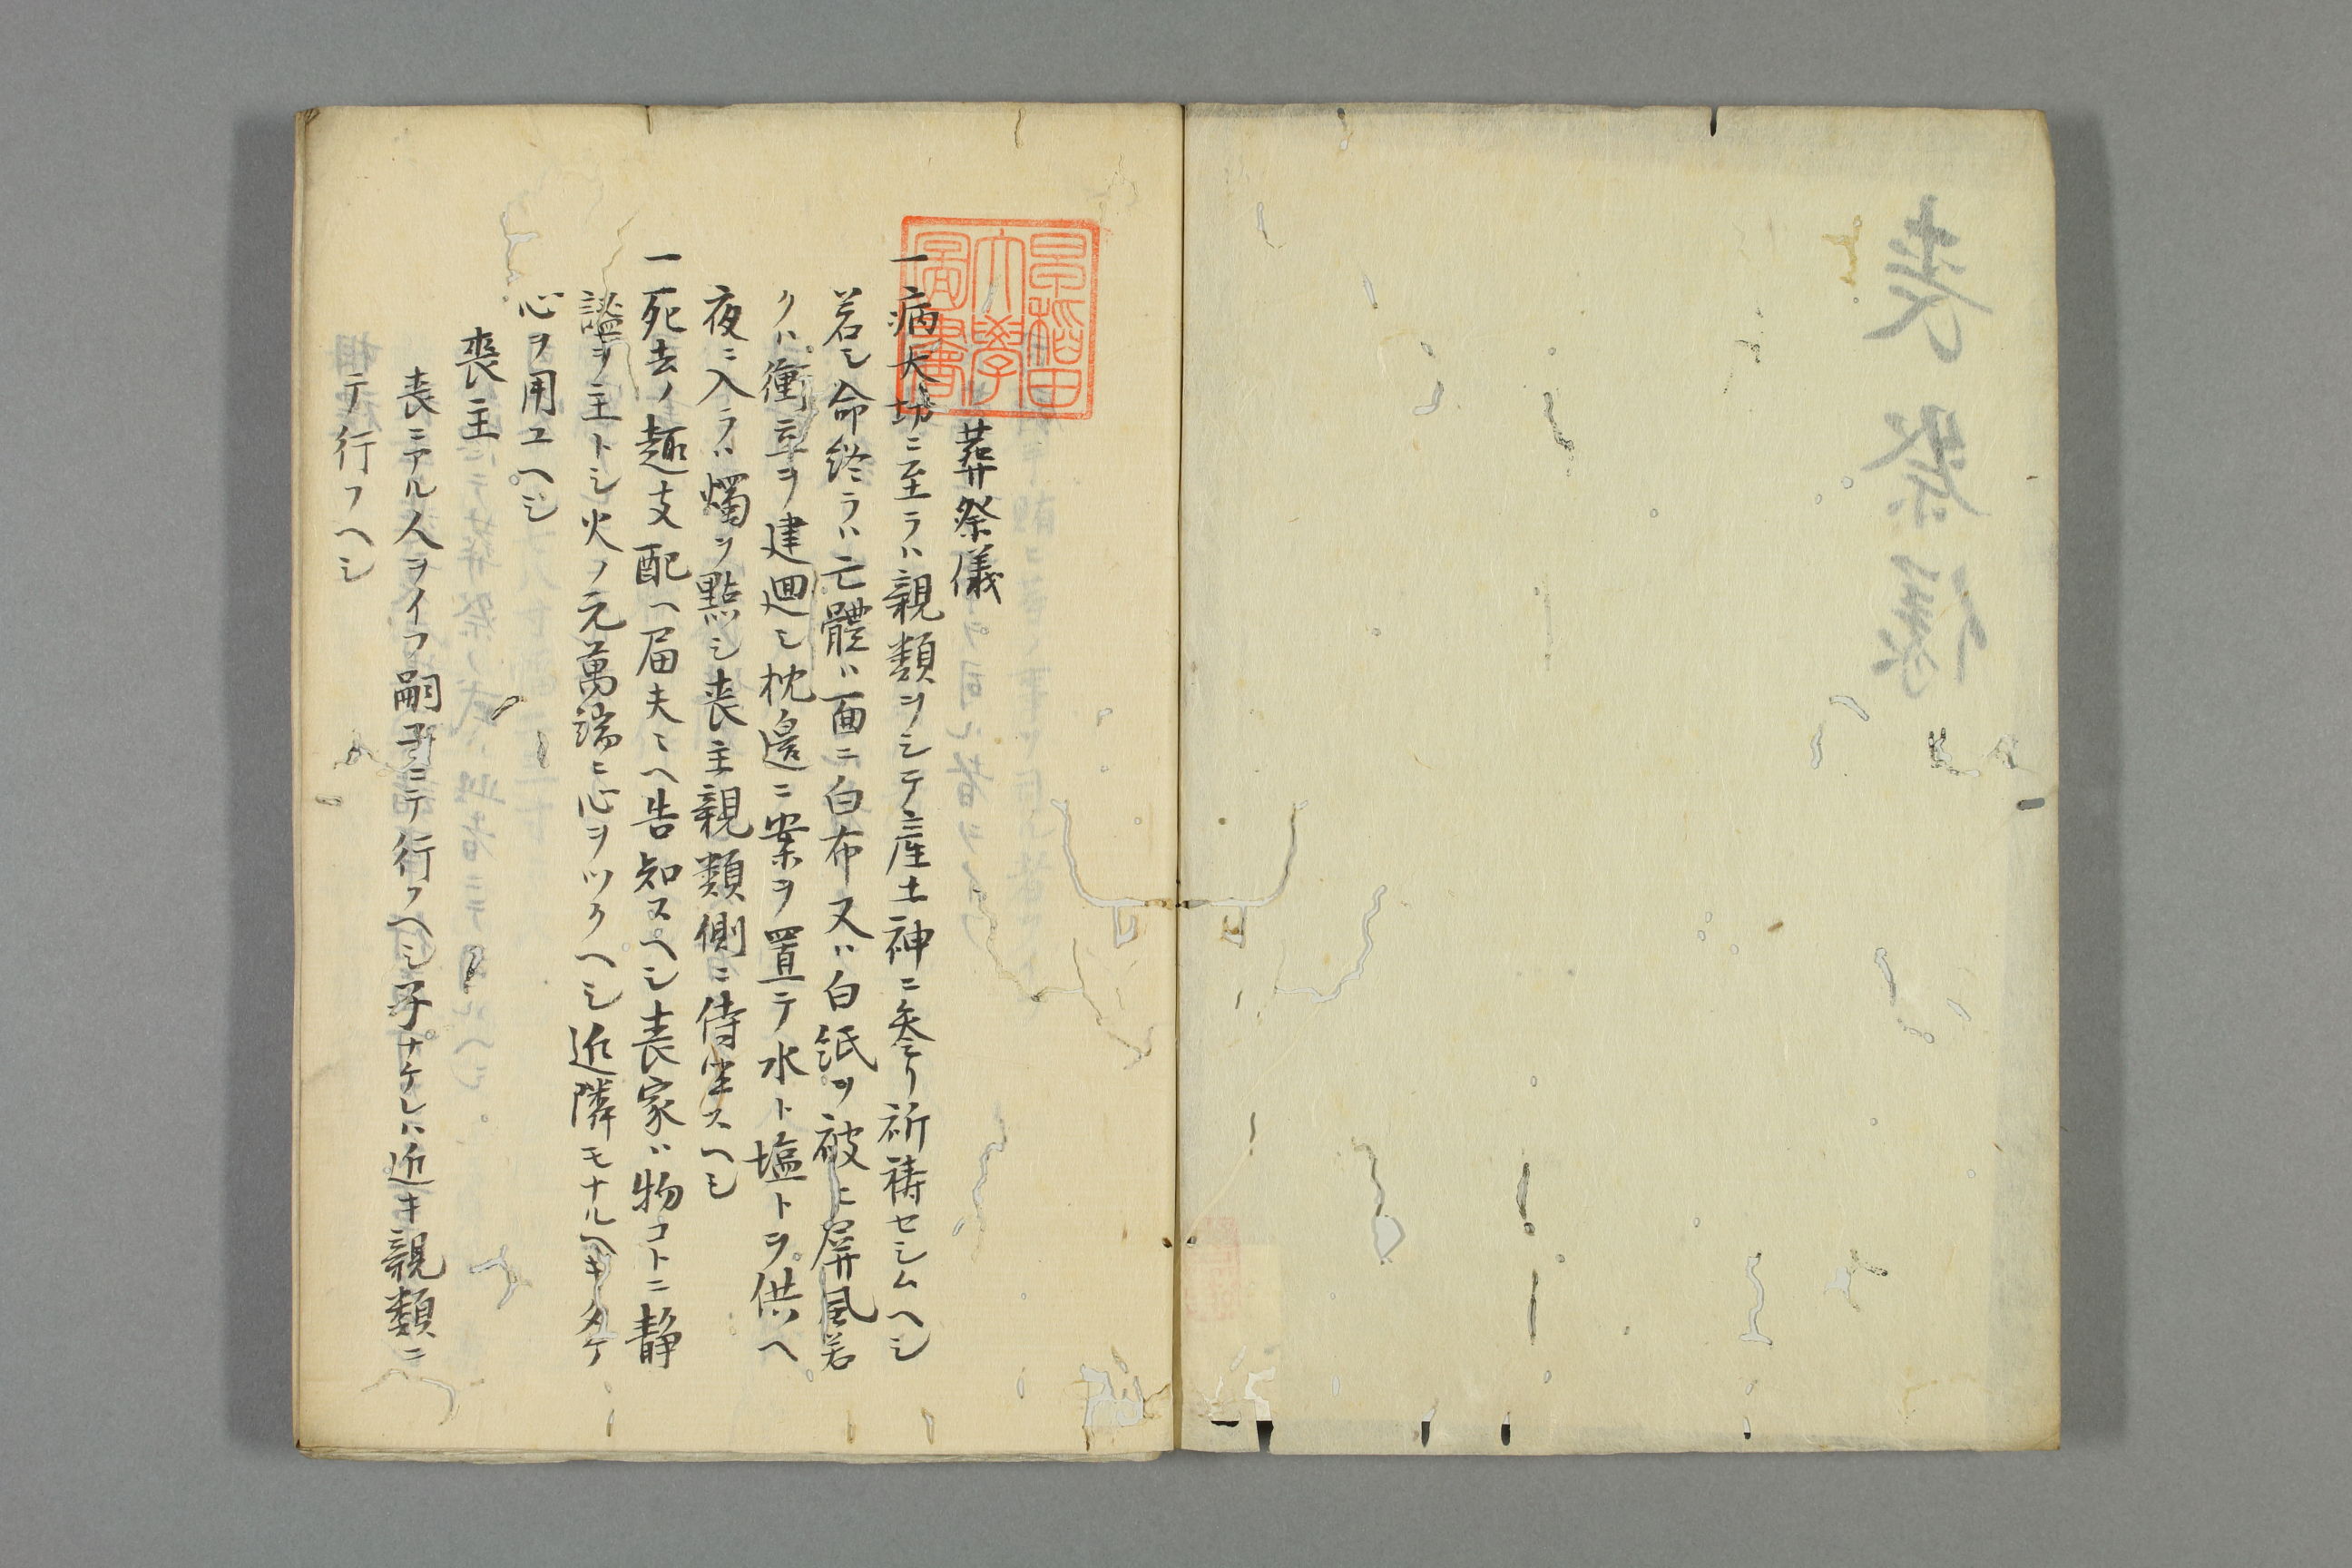 喪祭儀
早稲田大學圖書
葬祭儀
一病大切ニ至ラハ親類ヲシテ産土神ニ参リ祈祷セシムヘシ
若シ命終ラハ亡體ハ面ニ白布又ハ白紙ヲ被ヒ屏風若
クハ衝立ヲ建廻シ枕邊ニ案ヲ置テ水ト塩トヲ供ヘ
夜ニ入ラハ燭ヲ點シ喪主親類側ニ侍坐スヘシ
一死去ノ趣支配ヘ届夫ミヘ告知スヘシ喪家ハ物コトニ静
謐ヲ主トシ火ノ元萬端ニ心ヲツクヘシ近隣モナルヘキタケ
心ヲ用ユヘシ
喪主
喪ニアル人ヲイフ嗣子ニテ行フヘシ子ナケレハ近キ親類ニ
テ行フヘシ